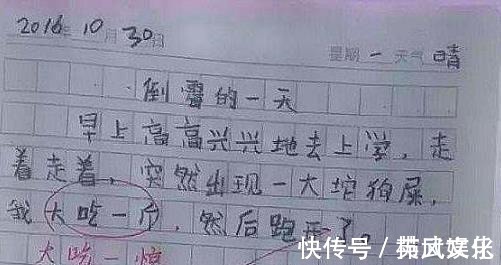 2016年10月30日 星期一 天气晴
倒霉的一天
早上高高兴兴地去上学，走
着走着，突然出现一大坨狗屎，
我大吃一斤，然后跑开了。
大吃一惊
快传号/